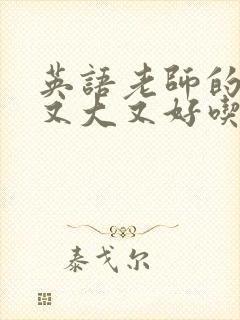 英語老師的
又大又好喫
泰戈尔